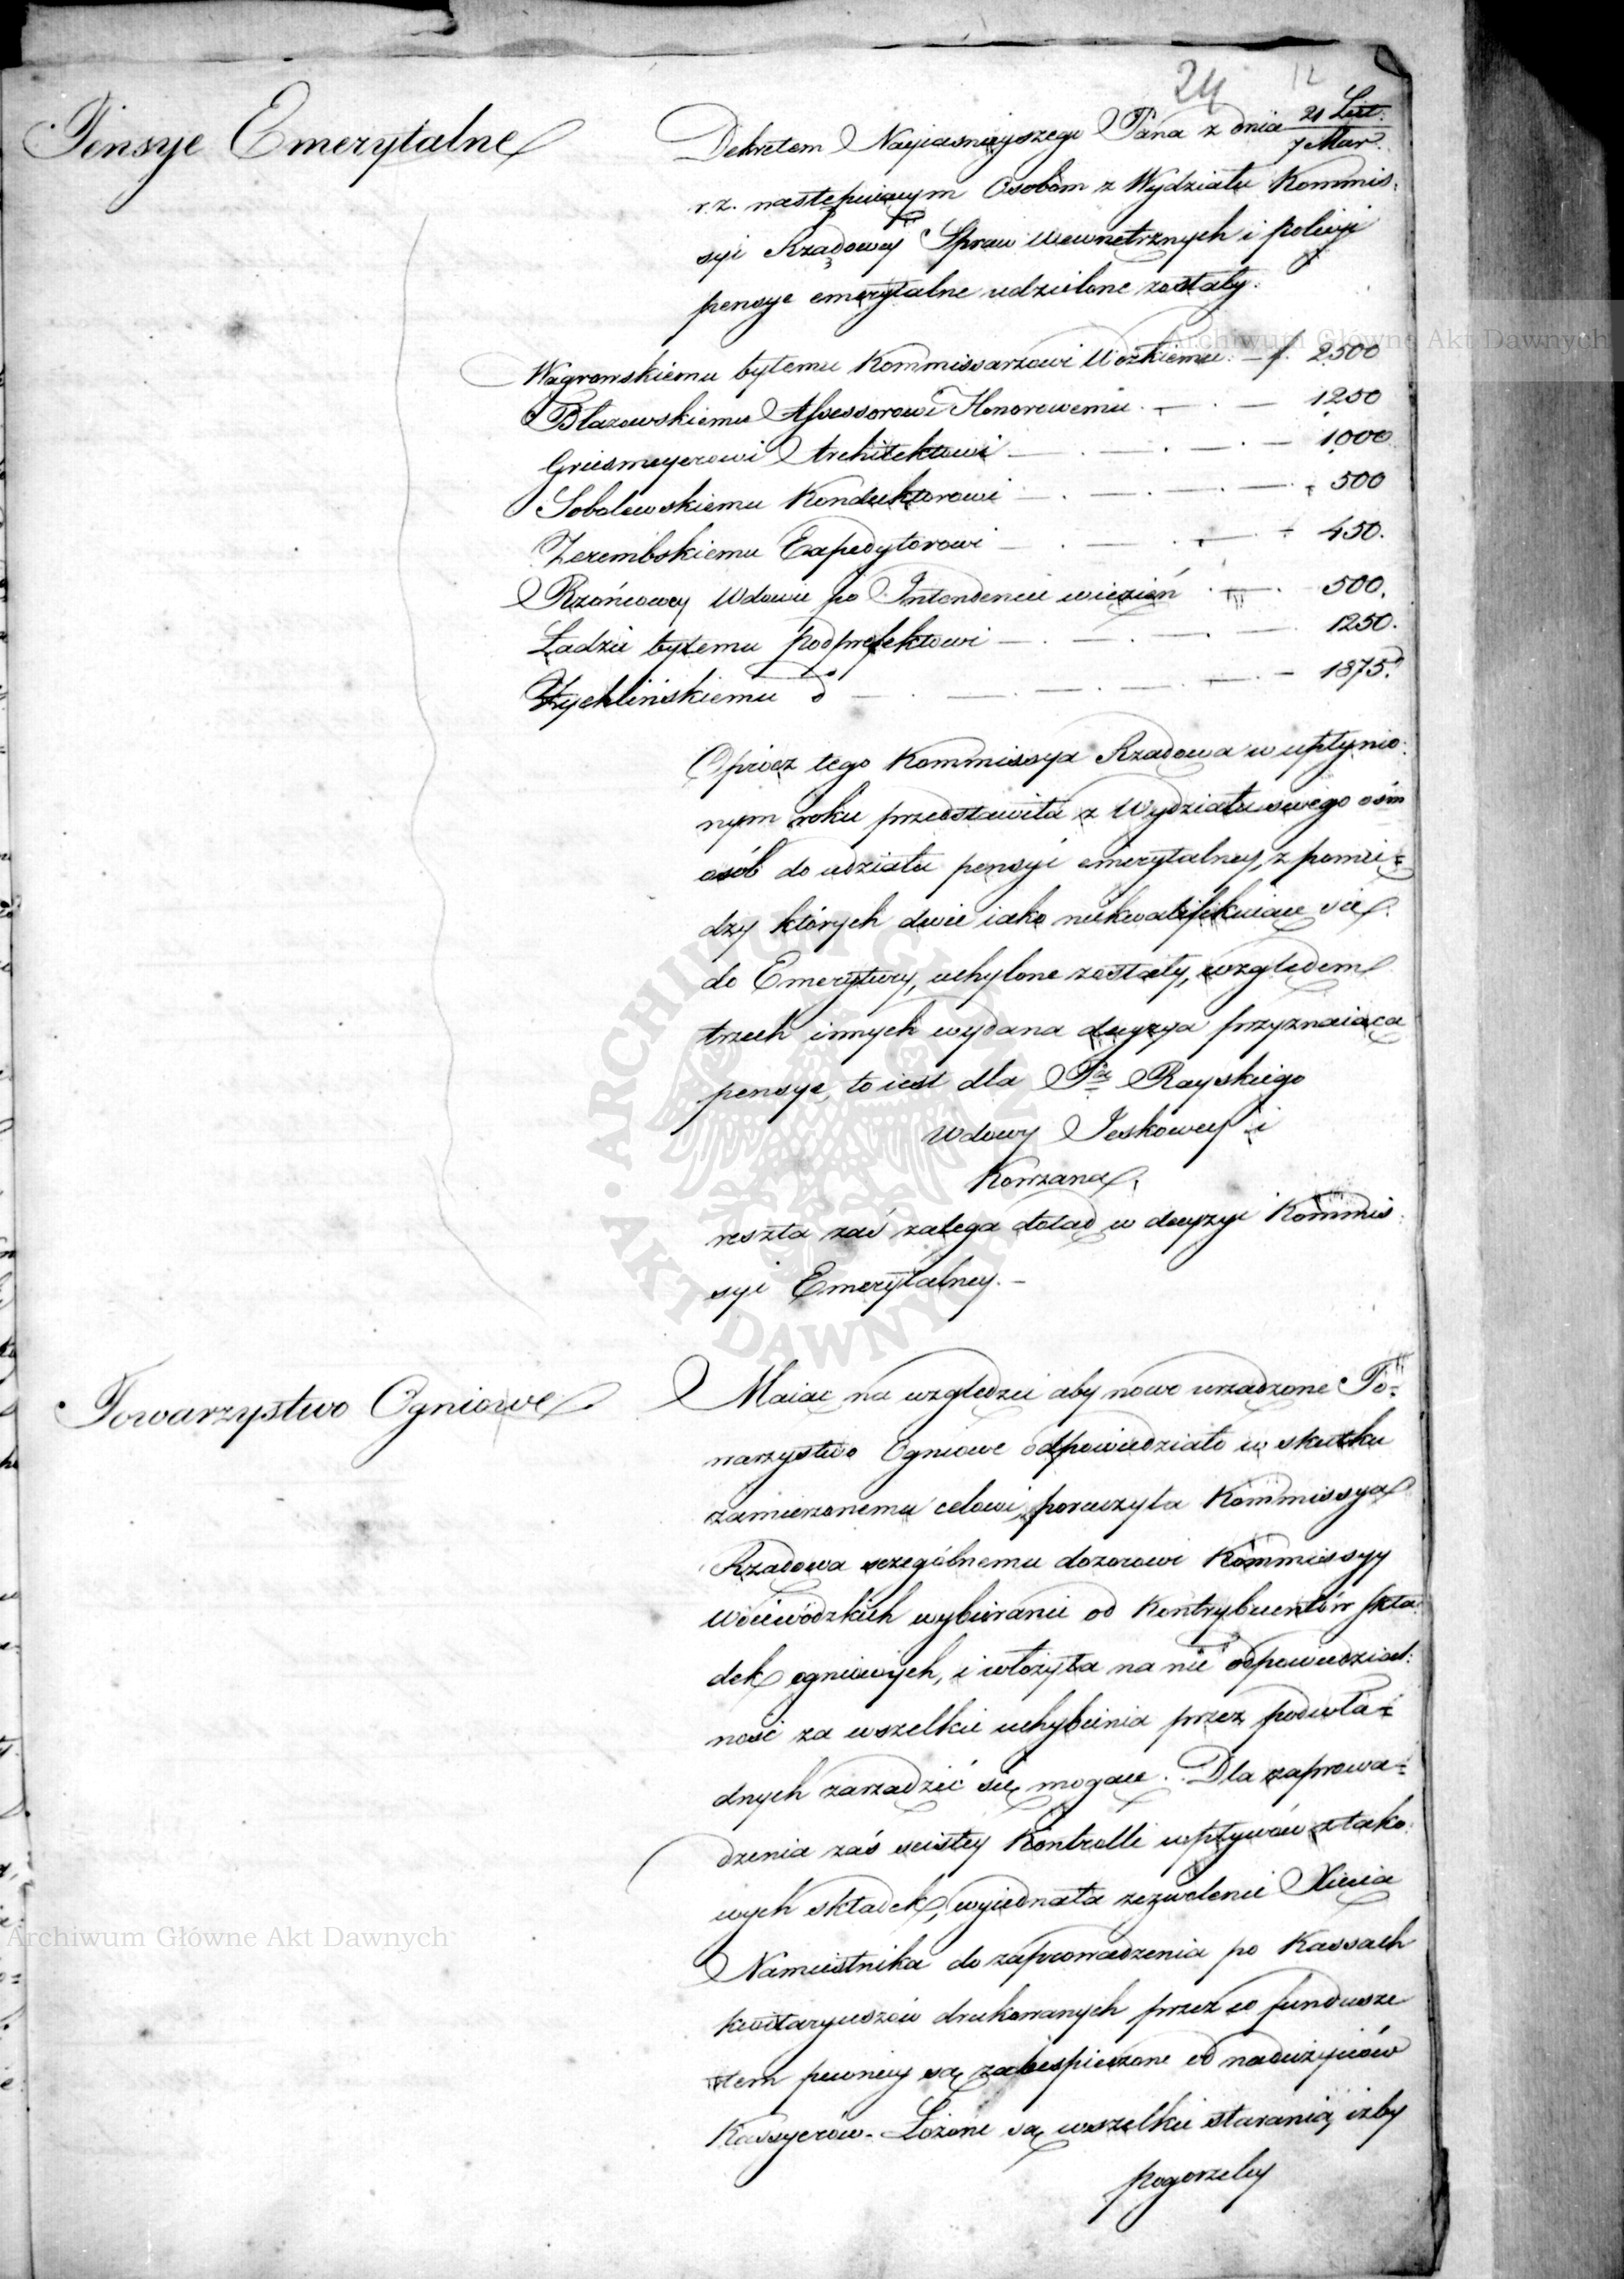 24 12
Pensye Emerytalne
Dekretem Nayiaśnieyszego Pana z dnia 21 Lut.
7 Mar.
r. z. następuiącym Osobom z Wydziału Kommis:
syi Rządowey Spraw Wewnętrznych i Policyi
pensye emerytalne udzielone zostały:
Wągrowskiemu byłemu Kommissarzowi Wozkiemu. — f. 2500
Błazowskiemu Assessorowi Honorowemu. — . — 1250
Griesmeyerowi Architektowi — . — . — . — 1000
Sobolewskiemu Konduktorowi — . — . — . — 500
Zerembskiemu Expedytorowi — . — . — 450.
Rzońcowey Wdowie po Intendencie więzień . — . 500.
Ładzie byłemu podprefektowi — . — . — . — 1250.
Zychlińskiemu do — . — . — . — . — 1875.
Oprócz tego Kommissya Rządowa w upłynio:
nym roku przedstawiła z Wydziału swego ośm
osób do udziału pensyi emerytalney, z pomię=
dzy których dwie iako niekwalifikuiące się
do Emerytury, uchylone zostały, względem
trzech innych wydana decyzya przyznaiąca
pensye, to iest dla Pa Rayskiego
Wdowy Jeskowey i
Korzana,
reszta zaś zalega dotąd w decyzyi Kommis:
syi Emerytalney. —
Towarzystwo Ogniowe
Maiąc na względzie aby nowo urządzone To=
warzystwo Ogniowe odpowiedziało w skutku
zamierzonemu celowi, poruczyła Kommissya
Rządowa szczególnemu dozorowi Kommissyy
Woiewódzkich wybieranie od Kontrybuentów skła
dek ogniowych, i włożyła na nie odpowiedzial:
ność za wszelkie uchybienia przez podwła=
dnych zarządzić się mogące. Dla zaprowa=
dzenia zaś ścisłey Kontrolli wpływów z tako:
wych składek, wyiednała zezwolenie Xięcia
Namiestnika do zaprowadzenia po Kassach
kwitaryuszów drukowanych przez co fundusze
tem pewniey są zabespieczone od nadużyciów
Kassyerów. Łożone są wszelkie starania, iżby
pogorzeley